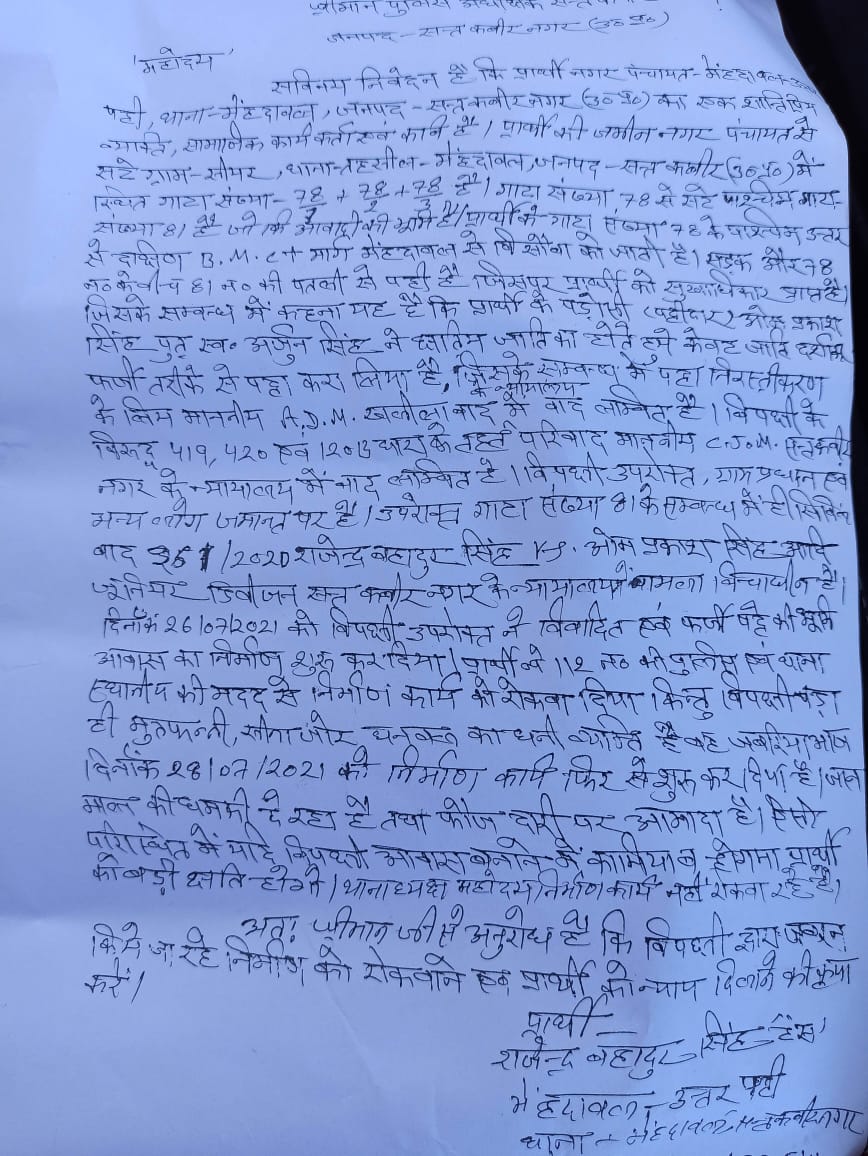 श्रीमान पुलिस अधीक्षक सन्त कबीर
जनपद - सन्त कबीर नगर (उ० प्र०)
'महोदय'
सविनय निवेदन है कि प्रार्थी नगर पंचायत - मेंहदावल - उत्तर
पट्टी, थाना - मेंहदावल, जनपद - सन्त कबीर नगर (उ० प्र०) का एक शान्तिप्रिय
व्यक्ति, सामाजिक कार्यकर्ता एवं कवि है। प्रार्थी की जमीन नगर पंचायत से
सटे ग्राम - साँयर, थाना - तहसील - मेंहदावल, जनपद - सन्त कबीर (उ० प्र०) में
स्थित गाटा संख्या - 78/1 + 78/2 + 78/3 है। गाटा संख्या 78 से सटे पश्चिम गाटा
संख्या 81 है जो की आबादी की भूमि है। प्रार्थी के गाटा संख्या 78 के पश्चिम उत्तर
से दक्षिण B.M.C.T मार्ग मेंहदावल से बिसौवा को जाती है। सड़क और 78
न० के बीच 81 न० की पतली से पट्टी है जिसपर प्रार्थी को सुखाधिकार प्राप्त है।
जिसके सम्बन्ध में कहना यह है कि प्रार्थी के पड़ोसी (पट्टीदार) ओम प्रकाश
सिंह पुत्र स्व० अर्जुन सिंह ने क्षत्रिय जाति का होते हुये केवट जाति दर्शाकर
फर्जी तरीके से पट्टा करा लिया है, जिसके सम्बन्ध में पट्टा निरस्तीकरण
के लिये माननीय A.D.M. खलीलाबाद के न्यायालय में वाद लम्बित है। विपक्षी के
विरूद्ध 419, 420 एवं 120B धारा के तहत परिवाद माननीय C.J.M. सन्त कबीर
नगर के न्यायालय में वाद लम्बित है। विपक्षी उपरोक्त, ग्राम प्रधान एवं
अन्य लोग जमानत पर है। उपरोक्त गाटा संख्या 81 के सम्बन्ध में ही सिविल
वाद 361/2020 राजेन्द्र बहादुर सिंह V/S. ओम प्रकाश सिंह आदि
जूनियर डिवीजन सन्त कबीर नगर के न्यायालय में मामला विचाराधीन है।
दिनाँक 26/07/2021 को विपक्षी उपरोक्त ने विवादित एवं फर्जी पट्टे की भूमि
आवास का निर्माण शुरू कर दिया। प्रार्थी ने 112 न० की पुलिस एवं थाना
स्थानीय की मदद से निर्माण कार्य को रोकवा दिया किन्तु विपक्षी बड़ा
ही मुतफन्नी, सीनाजोर धनबल का धनी व्यक्ति है वह जबरिया भोर
दिनाँक 28/07/2021 को निर्माण कार्य फिर से शुरू कर दिया है। जान
माल की धमकी दे रहा है तथा फौजदारी पर आमादा है। ऐसी
परिस्थिति में यदि विपक्षी आवास बनाने में कामयाब होगया प्रार्थी
को बड़ी क्षति होगी। थानाध्यक्ष महोदय निर्माण कार्य नहीं रोकवा रहे हैं।
अतः श्रीमान जी से अनुरोध है कि विपक्षी द्वारा जबरन
किये जा रहे निर्माण को रोकवाने एवं प्रार्थी को न्याय दिलाने की कृपा
करें।
प्रार्थी -
राजेन्द्र बहादुर सिंह 'हंस'
मेंहदावल - उत्तर पट्टी
थाना - मेंहदावल, सन्त कबीर नगर